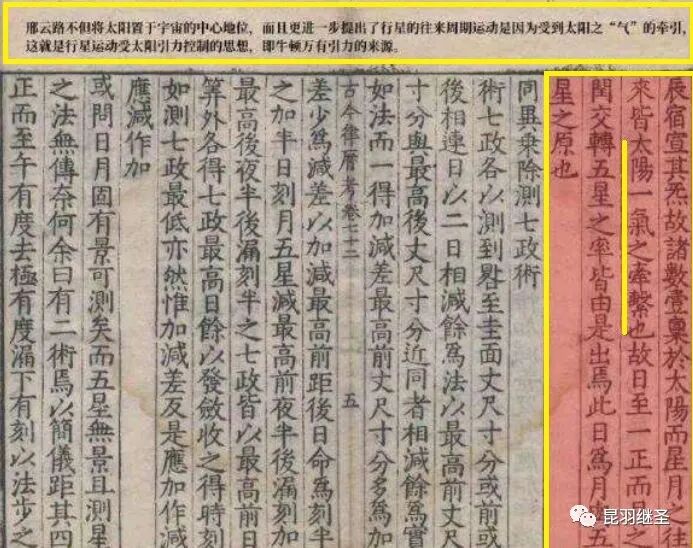 邢云路不但将太阳置于宇宙的中心地位，而且更进一步提出了行星的往来周期运动是因为受到太阳之“气”的牵引，
这就是行星运动受太阳引力控制的思想，即牛顿万有引力的来源。
辰宿宣其炁故諸數壹稟於太陽而星月之往
來皆太陽一氣之牽繫也故日至一正而月之
閏交轉五星之率皆由是出焉此日爲月五
星之原也
同異乘除測七政術
術七政各以測到晷至圭面丈尺寸分或前或
後相連日以二日相減餘爲法以最高前丈尺
寸分與最高後丈尺寸分近同者相減餘爲實
如法而一得加減差最高前丈尺寸分多爲加
古今律曆考卷七十二 五
差少爲減差以加減最高前距後日命爲刻
之加半日刻月五星減最高前夜半後漏刻加
最高後夜半後漏刻半之七政皆以最高前日
筭外各得七政最高日餘以發斂收之得時刻
如測七政最低亦然惟加減差反是應加作減
應減作加
或問日月固有景可測矣而五星無景且測星
之法無傳奈何余曰有二術焉以簡儀距其四
正而至午有度去極有度漏下有刻以法步之
昆羽继圣